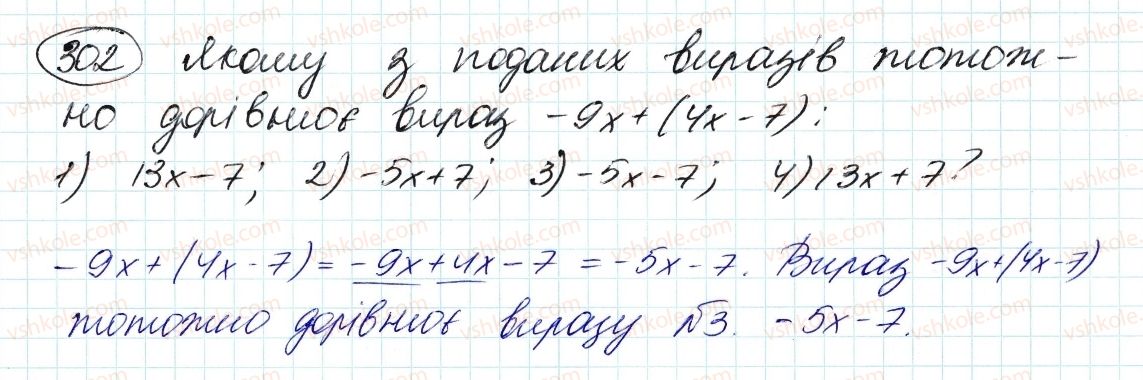 302 Якому з поданих виразів тотож-
но дорівнює вираз -9x+(4x-7):
1) 13x-7; 2) -5x+7; 3) -5x-7; 4) 13x+7?
-9x+(4x-7)=-9x+4x-7=-5x-7. Вираз -9x+(4x-7)
тотожно дорівнює виразу №3. -5x-7.